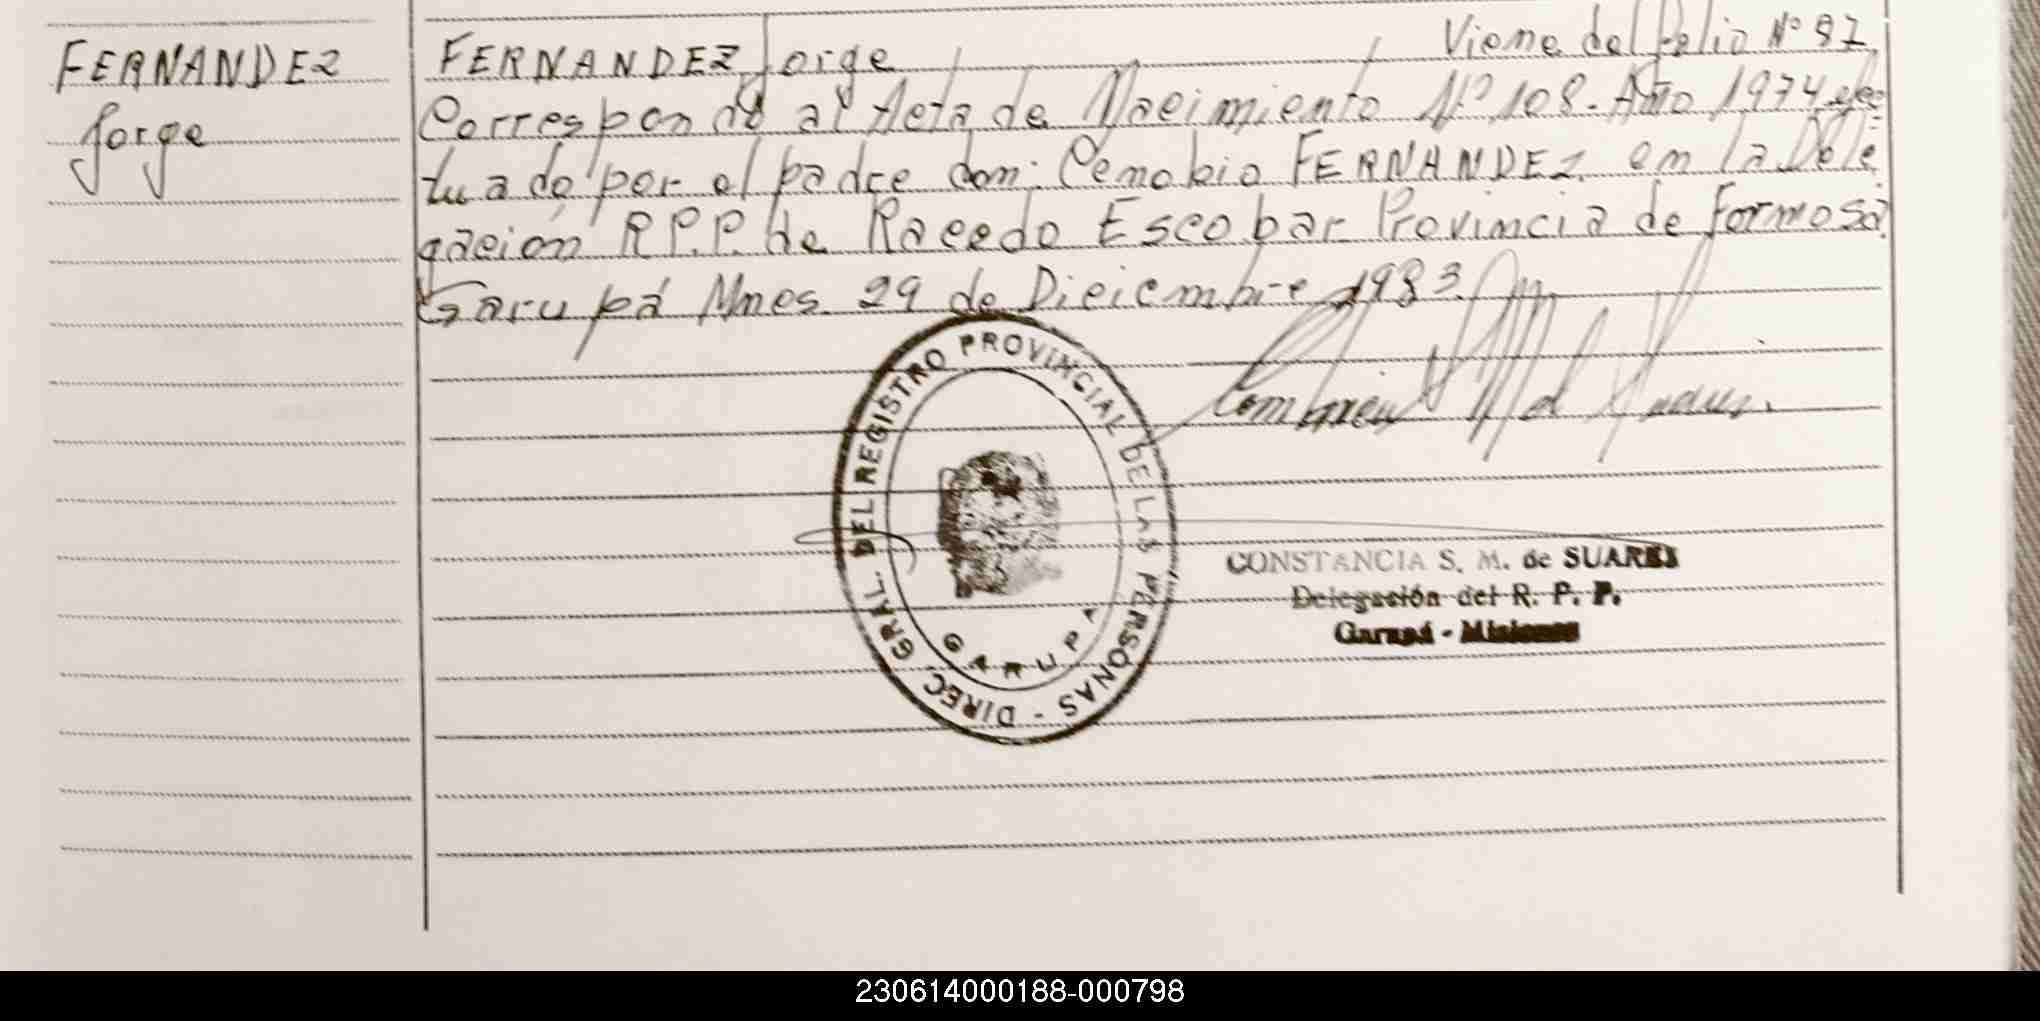 FERNANDEZ
Jorge
Viene del folio Nº 87
FERNANDEZ Jorge
Corresponde al Acta de Nacimiento Nº 108. Año 1974 efec
tuado por el padre don: Cenobio FERNANDEZ. en la Dele
gación R.P.P. de Racedo Escobar Provincia de Formosa
Garupá Mnes. 29 de Dieiembre 1983.
DIREC. GRAL. DEL REGISTRO PROVINCIAL DE LAS PERSONAS -
GARUPA
CONSTANCIA S. M. de SUAREZ
Delegación del R. P. P.
Garupá - Misiones
230614000188-000798